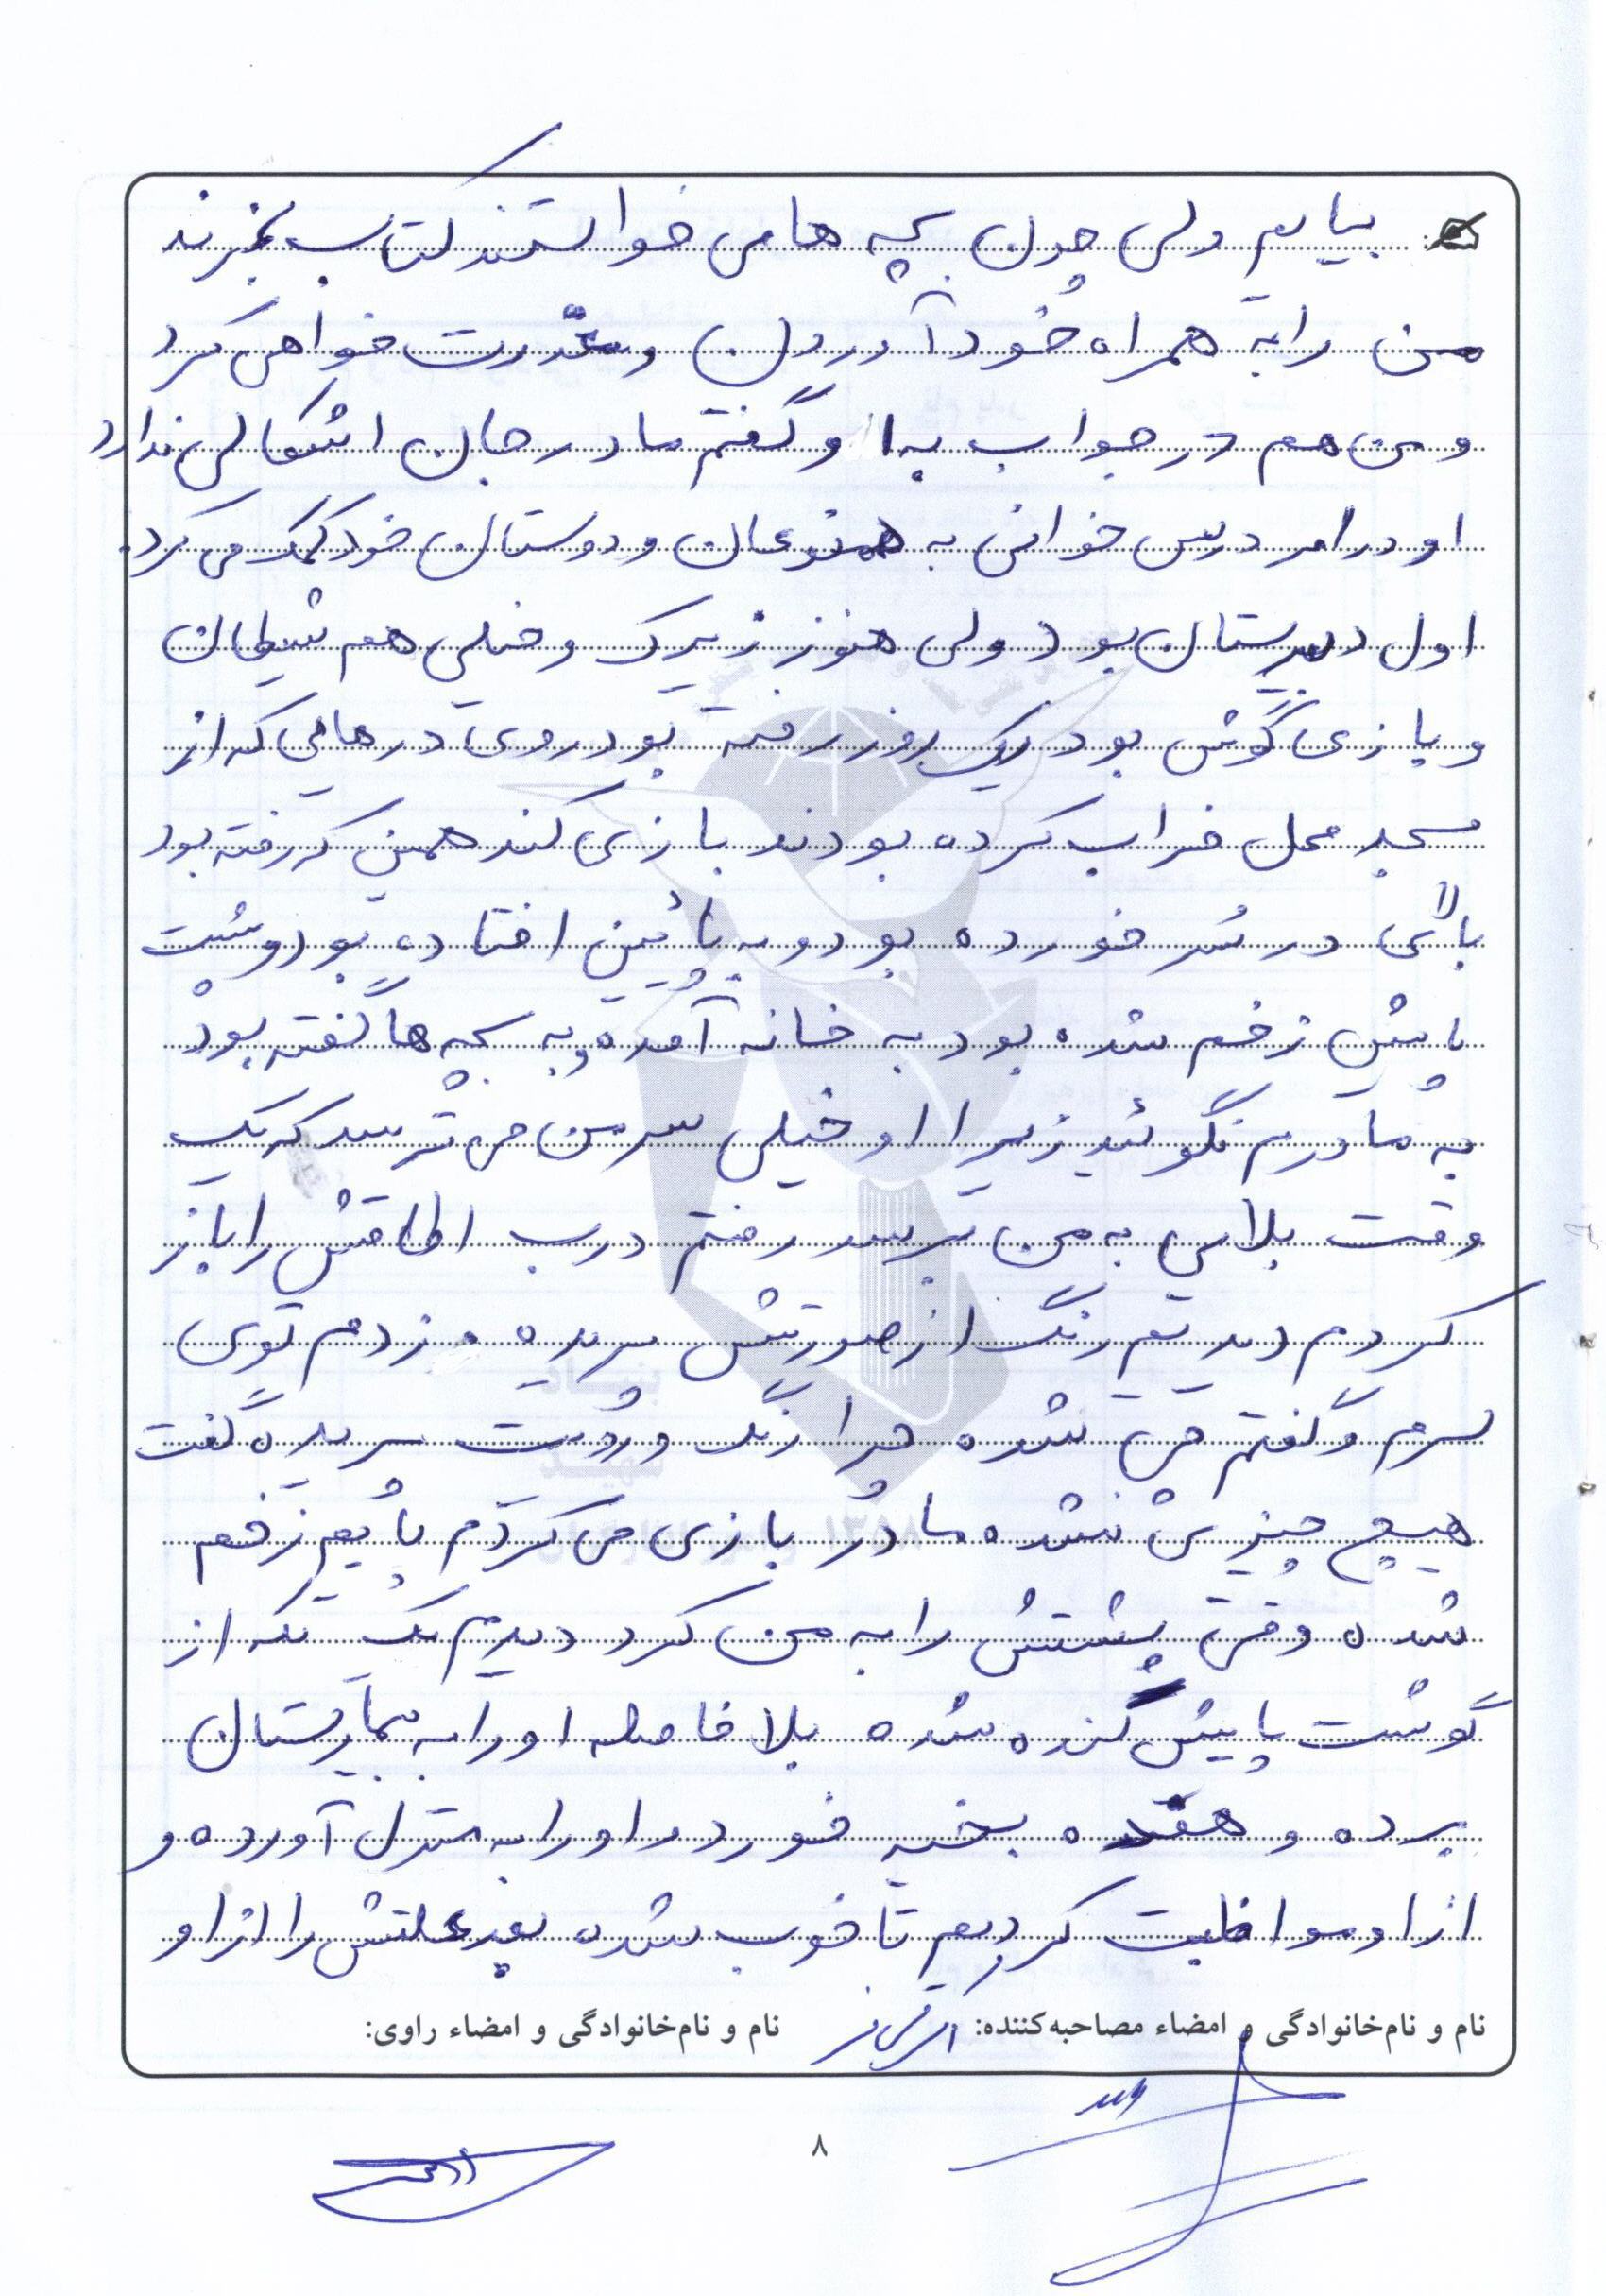 بیایم ولی چون بچه ها می خواستند کتاب بخرند
من را به همراه خود آوردن و معذرت خواهی کرد
و من هم در جواب به او گفتم مادر جان اشکالی ندارد
او در امر درس خوانی به همنوعان و دوستان خود کمک می کرد.
اول دبیرستان بود ولی هنوز زیرک و خیلی هم شیطان
و بازی گوش بود یک روز رفته بود روی درهایی که از
مسجد محل خراب کرده بودند بازی کند همین که رفته بود
بالای در سُر خورده بود و به پائین افتاده بود و پشت
پایش زخم شده بود به خانه آمده و به بچه ها گفته بود
به مادرم نگوئید زیرا او خیلی سر من می ترسد که یک
وقت بلایی به من برسد رفتم درب اطاقش را باز
کردم دیدیم رنگ از صورتش پریده . زدم توی
سرم و گفتم چی شده چرا رنگ و رویت پریده گفت
هیچ چیزی نشده مادر بازی می کردم پایم زخم
شده وقتی پشتش را به من کرد دیدم یک تکه از
گوشت پایش کنده شده بلافاصله او را به بیمارستان
برده و هفده بخیه خورد و او را به منزل آورده و
از او مواظبت کردیم تا خوب شده بعد علتش را از او
نام و نام‌خانوادگی و امضاء مصاحبه‌کننده: نام و نام‌خانوادگی و امضاء راوی:
۸